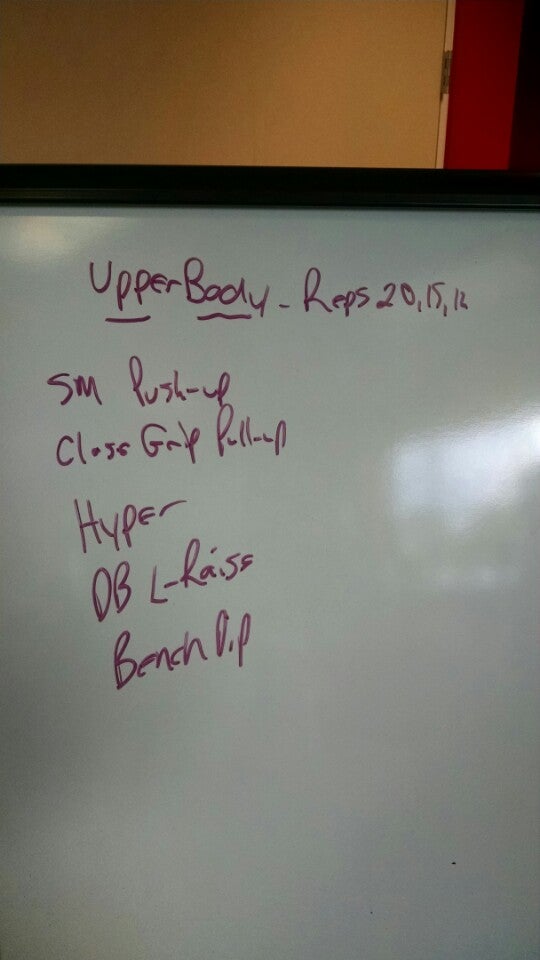 Upper Body - Reps 20, 15, 12
SM Push-up
Close Grip Pull-up
Hyper
DB L-Raise
Bench Dip